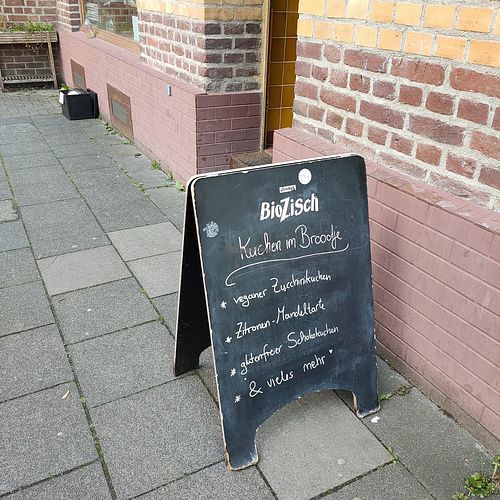 BioZisch
Kuchen im Broodje
* veganer Zucchinikuchen
* Zitronen-Mandeltarte
* glutenfreier Schokokuchen
* & vieles mehr